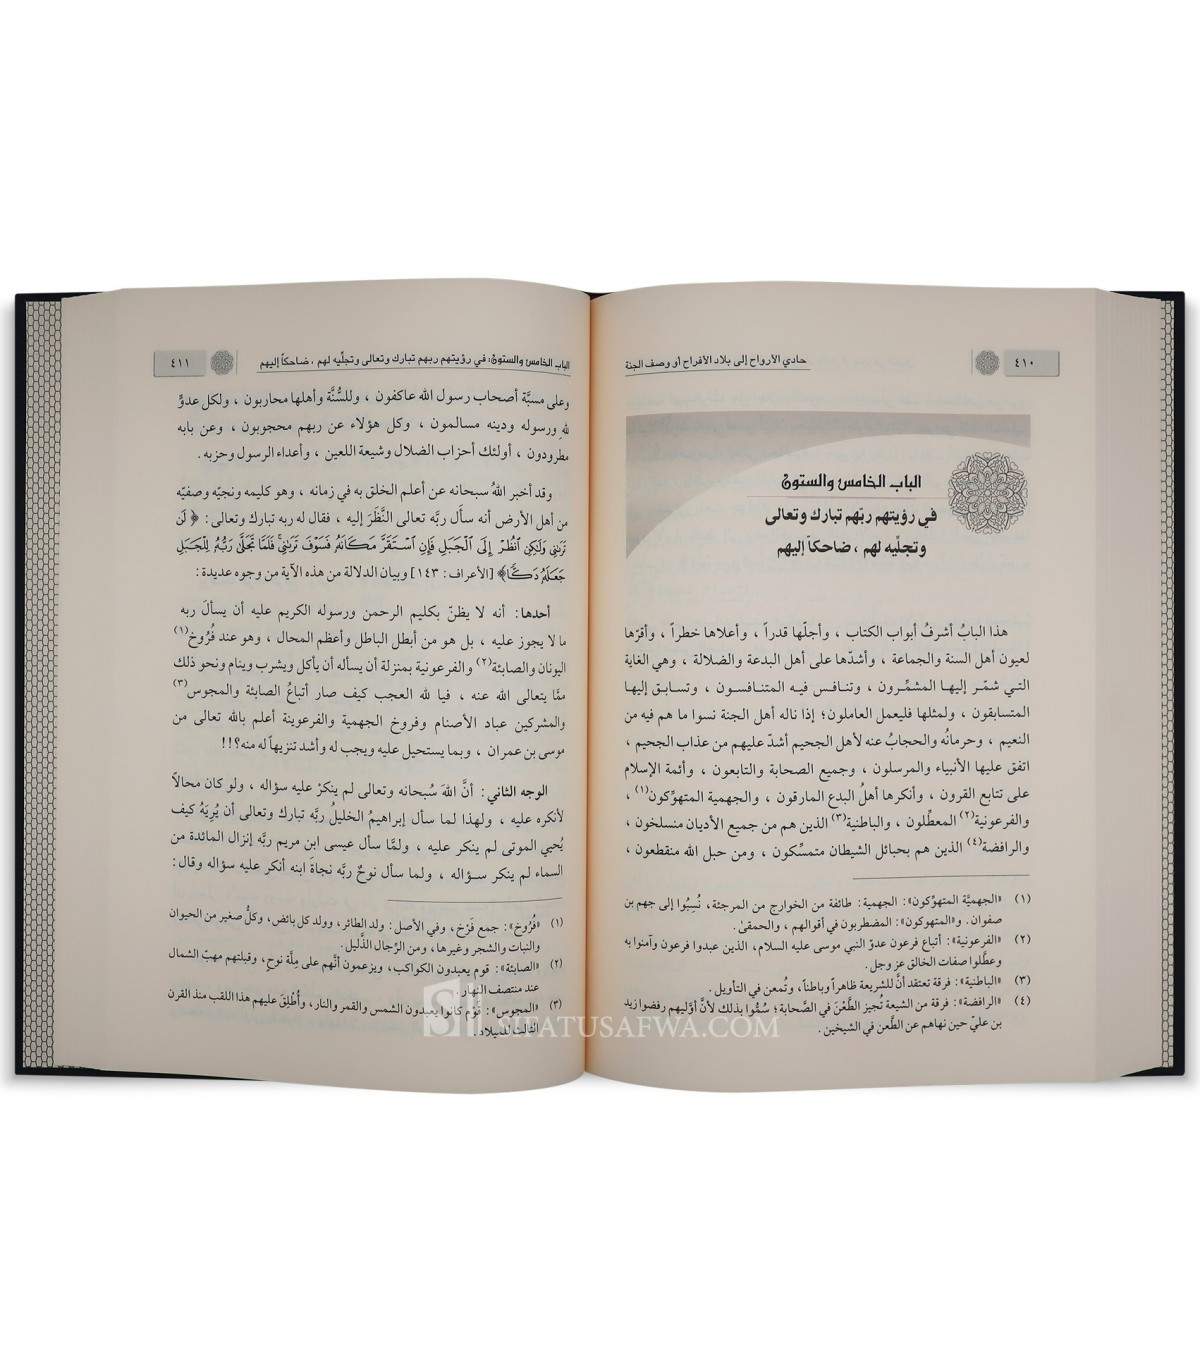 ٤١٠
حادي الأرواح إلى بلاد الأفراح أو وصف الجنة
الباب الخامس والستون
في رؤيتهم ربّهم تبارك وتعالى
وتجلّيه لهم ، ضاحكاً إليهم
هذا البابُ أشرفُ أبواب الكتاب ، وأجلّها قدراً ، وأعلاها خطراً ، وأقرّها
لعيون أهل السنة والجماعة ، وأشدّها على أهل البدعة والضلالة ، وهي الغاية
التي شمّر إليها المشمِّرون ، وتنافس فيه المتنافسون ، وتسابق إليها
المتسابقون ، ولمثلها فليعمل العاملون؛ إذا ناله أهل الجنة نسوا ما هم فيه من
النعيم ، وحرمانُه والحجابُ عنه لأهل الجحيم أشدّ عليهم من عذاب الجحيم ،
اتفق عليها الأنبياء والمرسلون ، وجميع الصحابة والتابعون ، وأئمة الإسلام
على تتابع القرون ، وأنكرها أهلُ البدع المارقون ، والجهمية المتهوِّكون(١) ،
والفرعونية(٢) المعطِّلون ، والباطنية(٣) الذين هم من جميع الأديان منسلخون ،
والرافضة(٤) الذين هم بحبائل الشيطان متمسِّكون ، ومن حبل الله منقطعون ،
(١) «الجهميَّة المتهوِّكون»: الجهمية: طائفة من الخوارج من المرجئة، نُسِبُوا إلى جهم بن
صفوان. و«المتهوكون»: المضطربون في أقوالهم ، والحمقىٰ.
(٢) «الفرعونية»: أتباع فرعون عدوّ النبي موسى عليه السلام، الذين عبدوا فرعون وآمنوا به
وعطَّلوا صفات الخالق عز وجل.
(٣) «الباطنية»: فرقة تعتقد أنَّ للشريعة ظاهراً وباطناً، وتُمعن في التأويل.
(٤) «الرافضة»: فرقة من الشيعة تُجيز الطَّعْنَ في الصَّحابة؛ سُمُّوا بذلك لأنَّ أوَّليهم رفضوا زيد
بن عليّ حين نهاهم عن الطَّعن في الشيخين.
الباب الخامس والستون: في رؤيتهم ربهم تبارك وتعالى وتجلِّيه لهم ، ضاحكاً إليهم
٤١١
وعلى مسبَّة أصحاب رسول الله عاكفون ، وللسُّنَّة وأهلها محاربون ، ولكل عدوٍّ
للهِ ورسوله ودينه مسالمون ، وكل هؤلاء عن ربهم محجوبون ، وعن بابه
مطرودون ، أولئك أحزاب الضلال وشيعة اللعين ، وأعداء الرسول وحزبه.
وقد أخبر اللهُ سبحانه عن أعلم الخلق به في زمانه ، وهو كليمه ونجيّه وصفيّه
من أهل الأرض أنه سأل ربَّه تعالى النَّظَرَ إليه ، فقال له ربه تبارك وتعالى: ﴿ لَن
تَرَىٰنِي وَلَٰكِنِ ٱنظُرْ إِلَى ٱلْجَبَلِ فَإِنِ ٱسْتَقَرَّ مَكَانَهُۥ فَسَوْفَ تَرَىٰنِي فَلَمَّا تَجَلَّىٰ رَبُّهُۥ لِلْجَبَلِ
جَعَلَهُۥ دَكًّا﴾ [الأعراف: ١٤٣] وبيان الدلالة من هذه الآية من وجوه عديدة:
أحدها: أنه لا يظنّ بكليم الرحمن ورسوله الكريم عليه أن يسألَ ربه
ما لا يجوز عليه ، بل هو من أبطل الباطل وأعظم المحال ، وهو عند فُرُوخ(١)
اليونان والصابئة(٢) والفرعونية بمنزلة أن يسأله أن يأكل ويشرب وينام ونحو ذلك
ممَّا يتعالى الله عنه ، فيا لله العجب كيف صار أتباعُ الصابئة والمجوس(٣)
والمشركين عباد الأصنام وفروخ الجهمية والفرعونية أعلم بالله تعالى من
موسى بن عمران ، وبما يستحيل عليه ويجب له وأشد تنزيهاً له منه؟!!
الوجه الثاني: أنَّ اللهَ سُبحانه وتعالى لم ينكرْ عليه سؤاله ، ولو كان محالاً
لأنكره عليه ، ولهذا لما سأل إبراهيمُ الخليلُ ربَّه تبارك وتعالى أن يُرِيَهُ كيف
يُحيي الموتى لم ينكر عليه ، ولمَّا سأل عيسى ابن مريم ربَّه إنزال المائدة من
السماء لم ينكر سؤاله ، ولما سأل نوحٌ ربَّه نجاةَ ابنه أنكر عليه سؤاله وقال:
(١) «فُرُوخ»: جمع فَرْخ، وفي الأصل: ولد الطائر، وولد كل بائض، وكلُّ صغير من الحيوان
والنبات والشجر وغيرها، ومن الرِّجال الذَّليل.
(٢) «الصابئة»: قوم يعبدون الكواكب، ويزعمون أنَّهم على مِلَّة نوحٍ، وقبلتهم مهبّ الشمال
عند منتصف النهار.
(٣) «المجوس»: قَوْم كانوا يعبدون الشمس والقمر والنار، وأُطْلِقَ عليهم هذا اللقب منذ القرن
الثالث للميلاد.
SIFATUSAFWA.COM